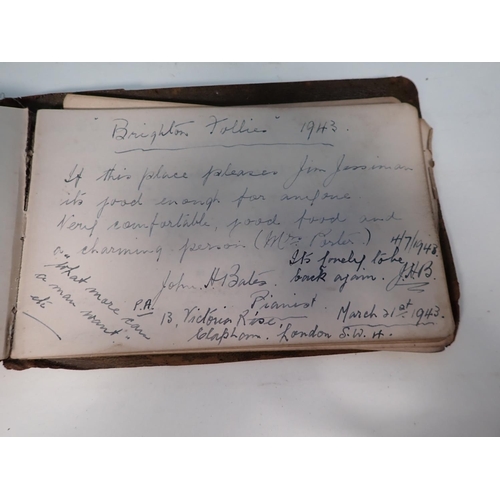 "Brighton Follies" 1943.
If this place pleases Jim Jesseman
its good enough for anyone
Very comfortable, good food and
a charming person (Mrs Porter.) 4/7/1943.
Its lovely to be
back again. J.H.B.
John. H. Bates.
Pianist.
"What more can
a man want".
etc
P.A. 13, Victoria Rise. March 21st 1943.
Clapham. London S.W.4.